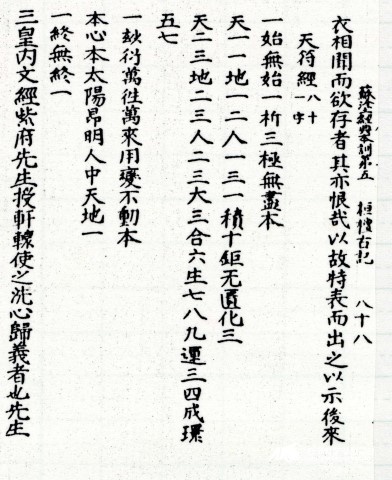 蘇塗經典本訓第五　桓檀古記　八十八
衣相聞而欲存者其亦恨哉以故特表而出之以示後來
天符經八十一字
一始無始一析三極無盡本
天一一地一二人一三一積十鉅无匱化三
天二三地二三人二三大三合六生七八九運三四成環
五七
一玅衍萬往萬來用變不動本
本心本太陽昻明人中天地一
一終無終一
三皇內文經紫府先生授軒轅使之洗心歸義者也先生